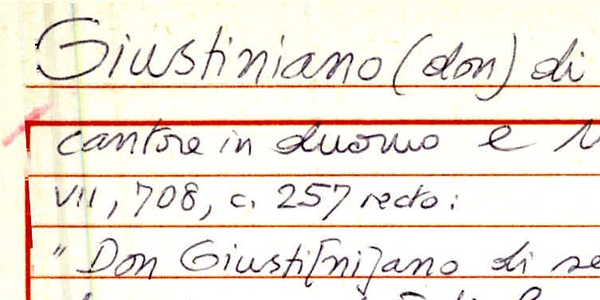 Giustiniano (don) di
cantore in duomo e
VII, 708, c. 257 recto:
" Don Giusti[ni]ano di se